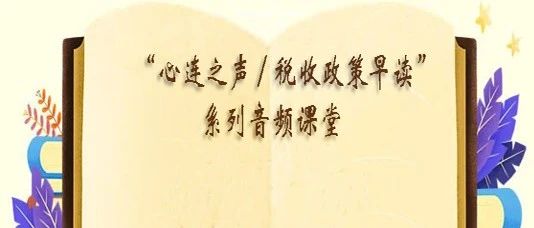 “心连之声/税收政策早读”
系列音频课堂